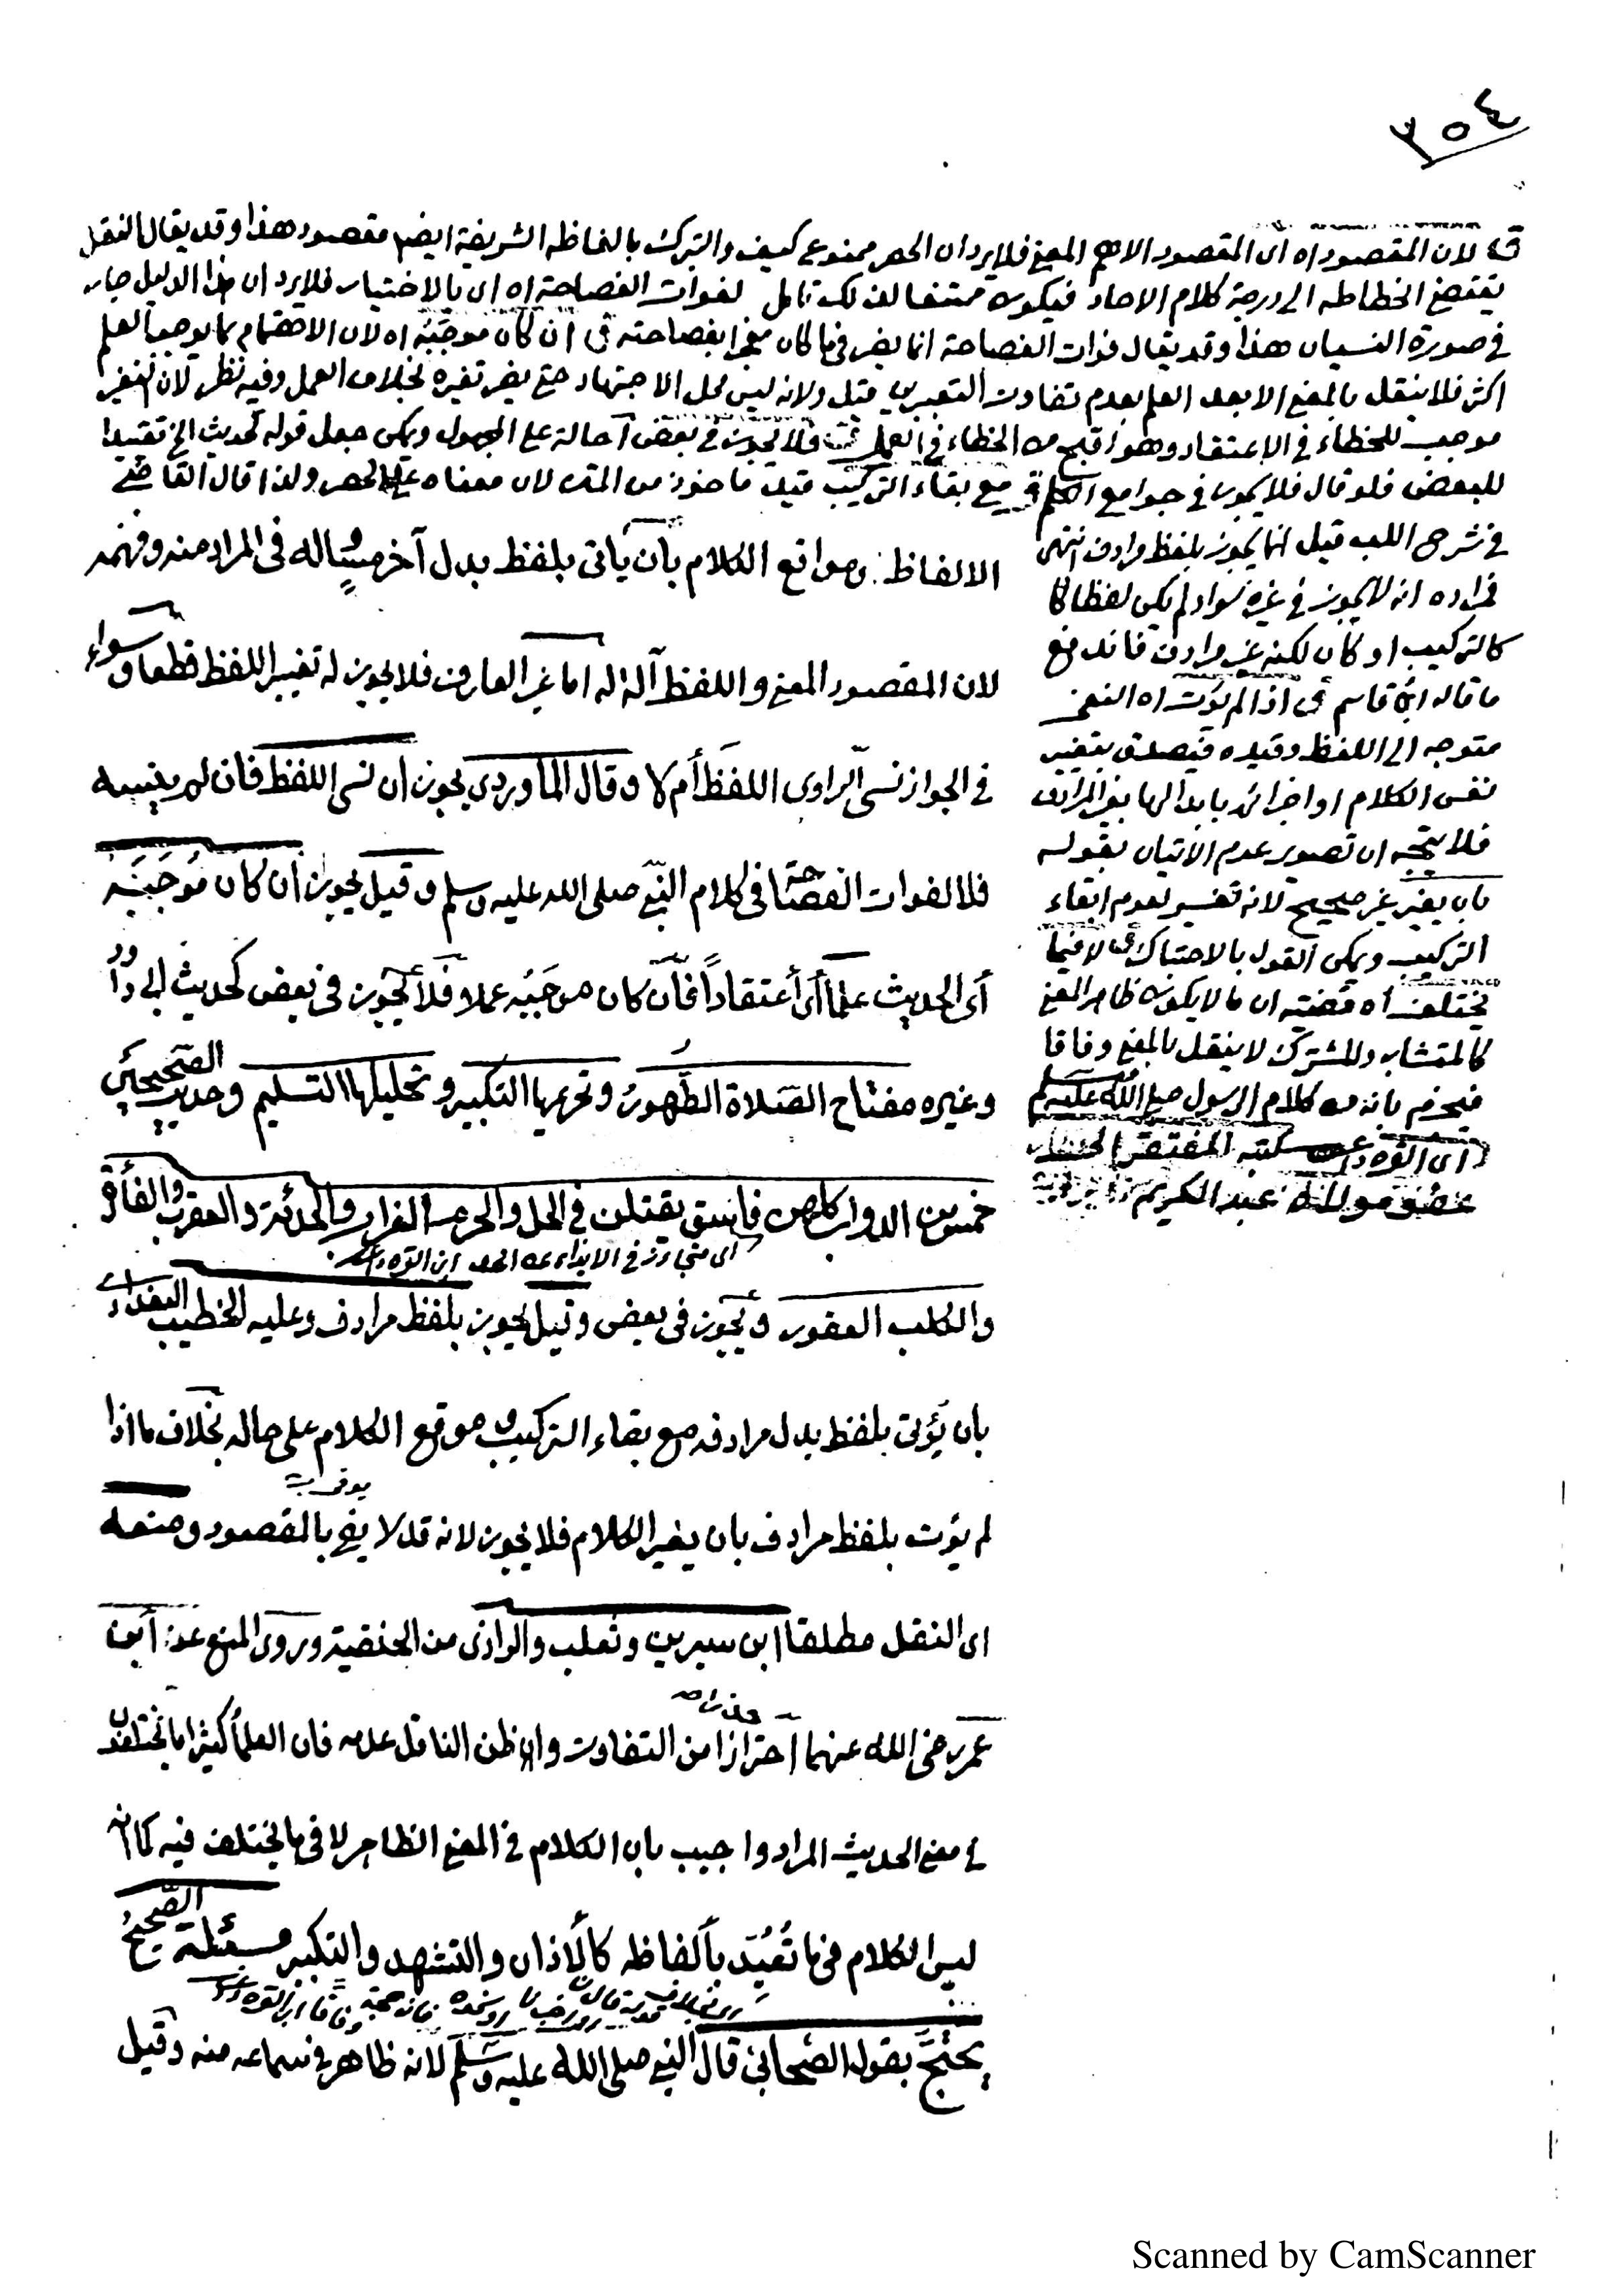 ٣٥٤
لان المقصود اه اى المقصود الاهم المعنى فلايرد ان الحصر ممنوع كيف والتبرك بالفاظه الشريفة ايضا مقصود هذا وقد يقال النقل
يقتضى انحطاطه الى درجة كلام الاحاد فيكون ممتنعا لذلك تامل لفوات الفصاحة اه اى بالاختيار فلايرد ان هذا الدليل جار
فى صورة النسيان هذا وقد يقال فوات الفصاحة انما يضر فيما كان معجزا بفصاحته ان كان موجَبُه اه لان الاهتمام بما يوجب العلم
اكثر فلا ينقل بالمعنى الا بعد العلم بعدم تفاوت التعبيرين قيل ولانه ليس محل الاجتهاد حتى يضر تغيره بخلاف العمل وفيه نظر لان التغير
موجب للخطاء فى الاعتقاد وهو اقبح من الخطاء فى العمل فلا يجوز فى بعض احالة على المجهول ويمكن جعل قوله كحديث الخ تقييدا
للبعض فلو قال فلا يجوز فى جوامع الكلم مع بقاء التركيب قيد ماخوذ من المتن لان معناه على الحصر ولذا قال القاضى
فى شرح اللب قيل انما يجوز بلفظ مرادف انتهى
فمراده انه لا يجوز فى غيره سواء لم يكن لفظا
كالتركيب او كان لكنه غير مرادف فاندفع
ما قاله ابن قاسم اذا لم يؤت اه النفى
متوجه الى اللفظ وقيده فيصدق بتغيير
نفس الكلام او اجزائه بابدالها بغير المرادف
فلا يتجه ان تصوير عدم الاتيان بقوله
بان يغير غير صحيح لانه تفسير لعدم ابقاء
التركيب ويمكن القول بالاحتباك لا فيما
يختلف اه قضيته ان ما لا يكون ظاهر المعنى
كالمتشابه والمشترك لا ينقل بالمعنى وفاقا
فيجزم بانه من كلام الرسول صلى الله عليه وسلم
كتبه المفتقر
مولانا عبد الكريم
الالفاظ ومواقع الكلام بأن يأتى بلفظ بدل آخر مساوٍ له فى المراد منه وفهمه
لان المقصود المعنى واللفظ آلة له اما غير العارف فلا يجوز له تغيير اللفظ قطعا وسواء
فى الجواز نسى الراوى اللفظ أم لا وقال الماوردى يجوز ان نسى اللفظ فان لم ينسه
فلا لفوات الفصاحة فى كلام النبى صلى الله عليه وسلم وقيل يجوز ان كان مُوجَبُه
أى الحديث علما أى اعتقاداً فان كان موجَبُه عملا فلا يجوز فى بعض كحديث ابى داود
وغيره مفتاح الصلاة الطهورُ وتحريمها التكبير وتحليلها التسليم وحديث الصحيحين
خمس من الدواب كلهن فاسق يقتلن فى الحل والحرم الغراب والحدأة والعقرب والفأرة
اى متجاوز فى الايذاء عن الحد ابن القره داغى
والكلب العقور ويجوز فى بعض وقيل يجوز بلفظ مرادف وعليه الخطيب البغدادى
بأن يُؤتى بلفظ بدل مرادفه مع بقاء التركيب وموقع الكلام على حاله بخلاف ما اذا
لم يؤت بلفظ مرادف بان يغير الكلام فلا يجوز لانه قد لا يفى بالمقصود ومنعه
اى النقل مطلقا ابن سيرين وثعلب والرازى من الحنفية وروى المنع عن ابن
عمر رضى الله عنهما احترازا من التفاوت وان ظن الناقل عدمه فان العلماء كثيرا ما يختلفون
فى معنى الحديث المراد واجيب بان الكلام فى المعنى الظاهر لا فيما يختلف فيه كما انه
ليس الكلام فيما تُعُبِّد بألفاظه كالأذان والتشهد والتكبير مسئلة الصحيحُ
يحتجّ بقول الصحابى قال النبى صلى الله عليه وسلم لانه ظاهر فى سماعه منه وقيل
Scanned by CamScanner